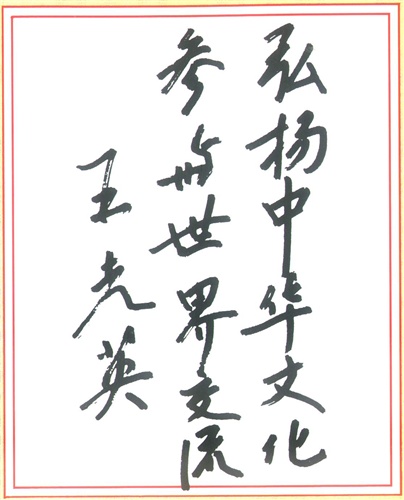 弘杨中华文化
参与世界交流
王光英